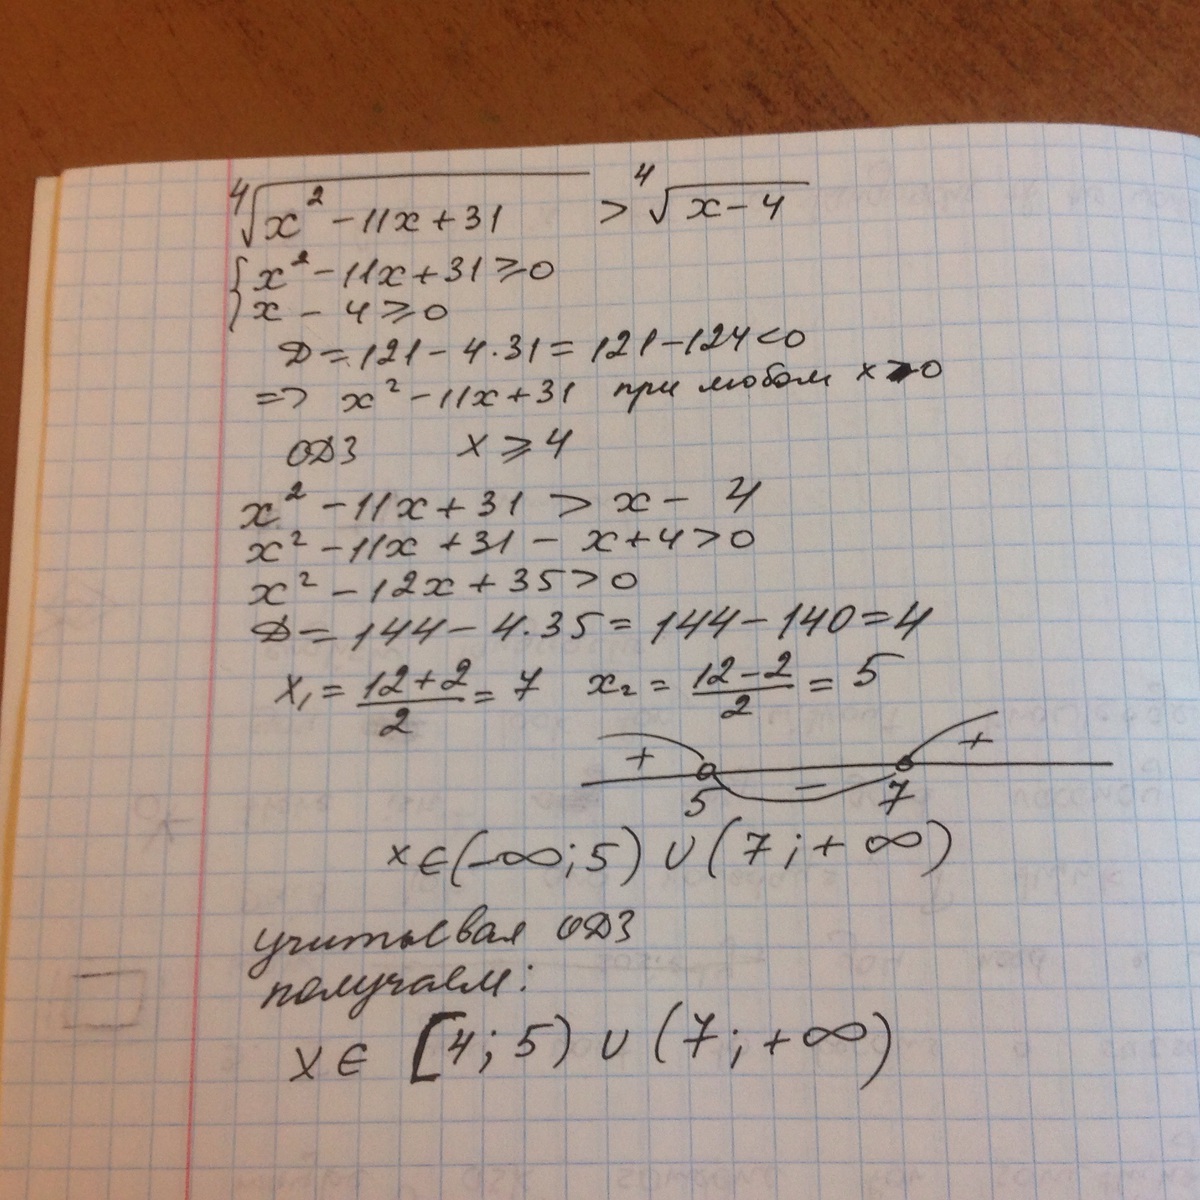 ⁴√(x² - 11x + 31) > ⁴√(x - 4)
{ x² - 11x + 31 ≥ 0
x - 4 ≥ 0
D = 121 - 4·31 = 121 - 124 < 0
=> x² - 11x + 31 при любом x > 0
ОДЗ x ≥ 4
x² - 11x + 31 > x - 4
x² - 11x + 31 - x + 4 > 0
x² - 12x + 35 > 0
D = 144 - 4·35 = 144 - 140 = 4
x₁ = (12+2)/2 = 7 x₂ = (12-2)/2 = 5
+ - +
5 7
x ∈ (-∞; 5) ∪ (7; +∞)
учитывая ОДЗ
получаем:
x ∈ [4; 5) ∪ (7; +∞)